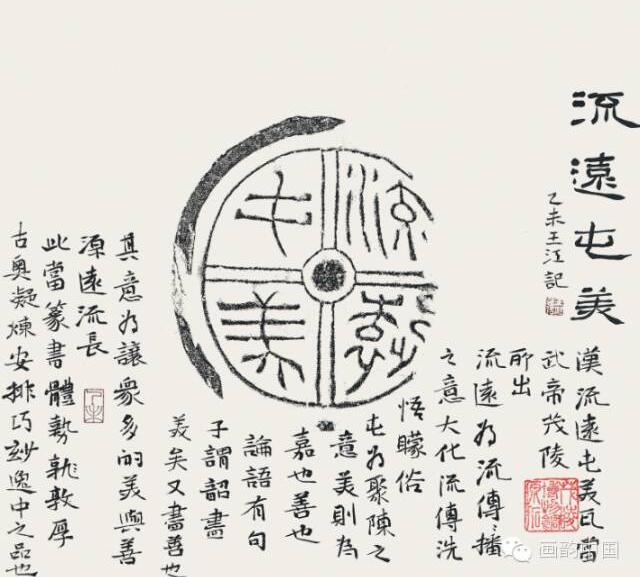 流遠屯美
乙未王江記
漢流遠屯美瓦當
武帝茂陵
所出
流遠为流傳、播
之意大化流傳洗
悟矇俗
屯为聚陳之
意美則为
嘉也善也
論語有句
子謂韶盡
美矣又盡善也
其意为讓眾多的美與善
源遠流長
此當篆書體勢 敦厚
古奥凝煉安排巧妙逸中之品也
流遠屯美
画韵中国